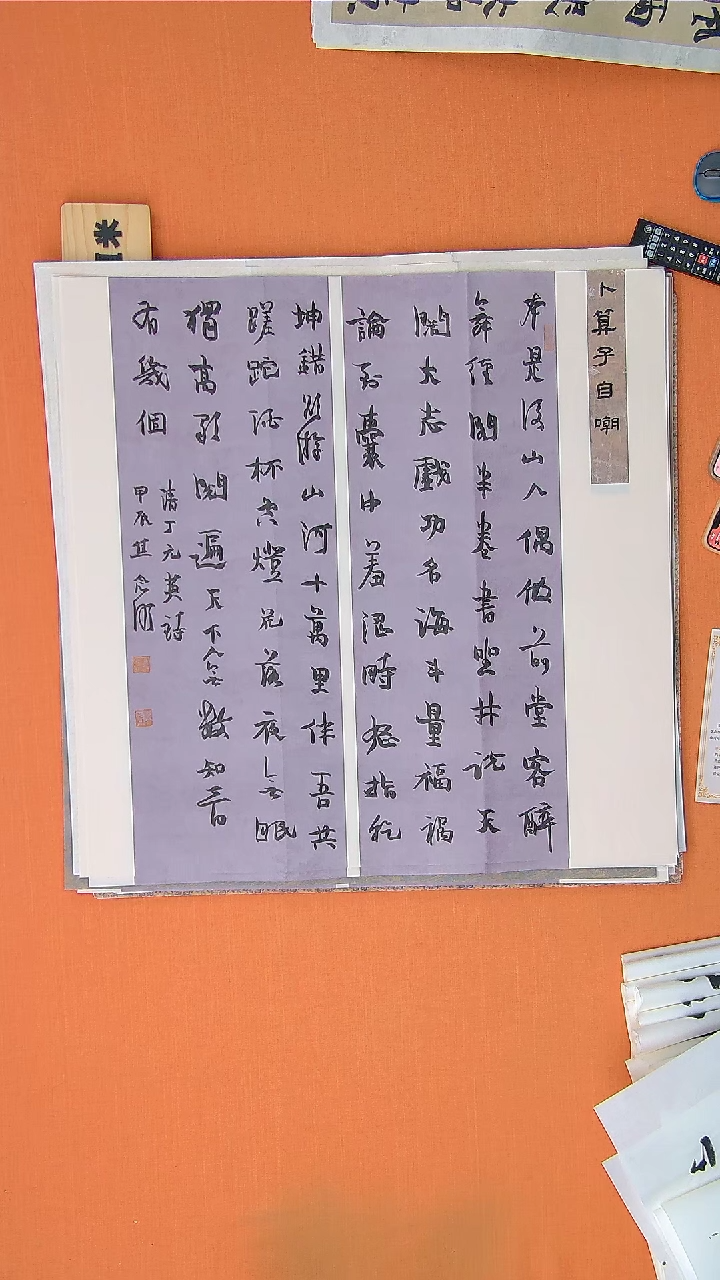 卜算子自嘲
本是後山人偶做前堂客醉
舞經閣半卷書坐井說天
闊大志戲功名海斗量福禍
論到囊中羞澀時怒指乾
坤錯欲游山河十萬里伴吾共
蹉跎酒杯空燈花落夜無眠
獨高歌閱遍天下人無數知音
有幾個
清丁元英詩
甲辰
米